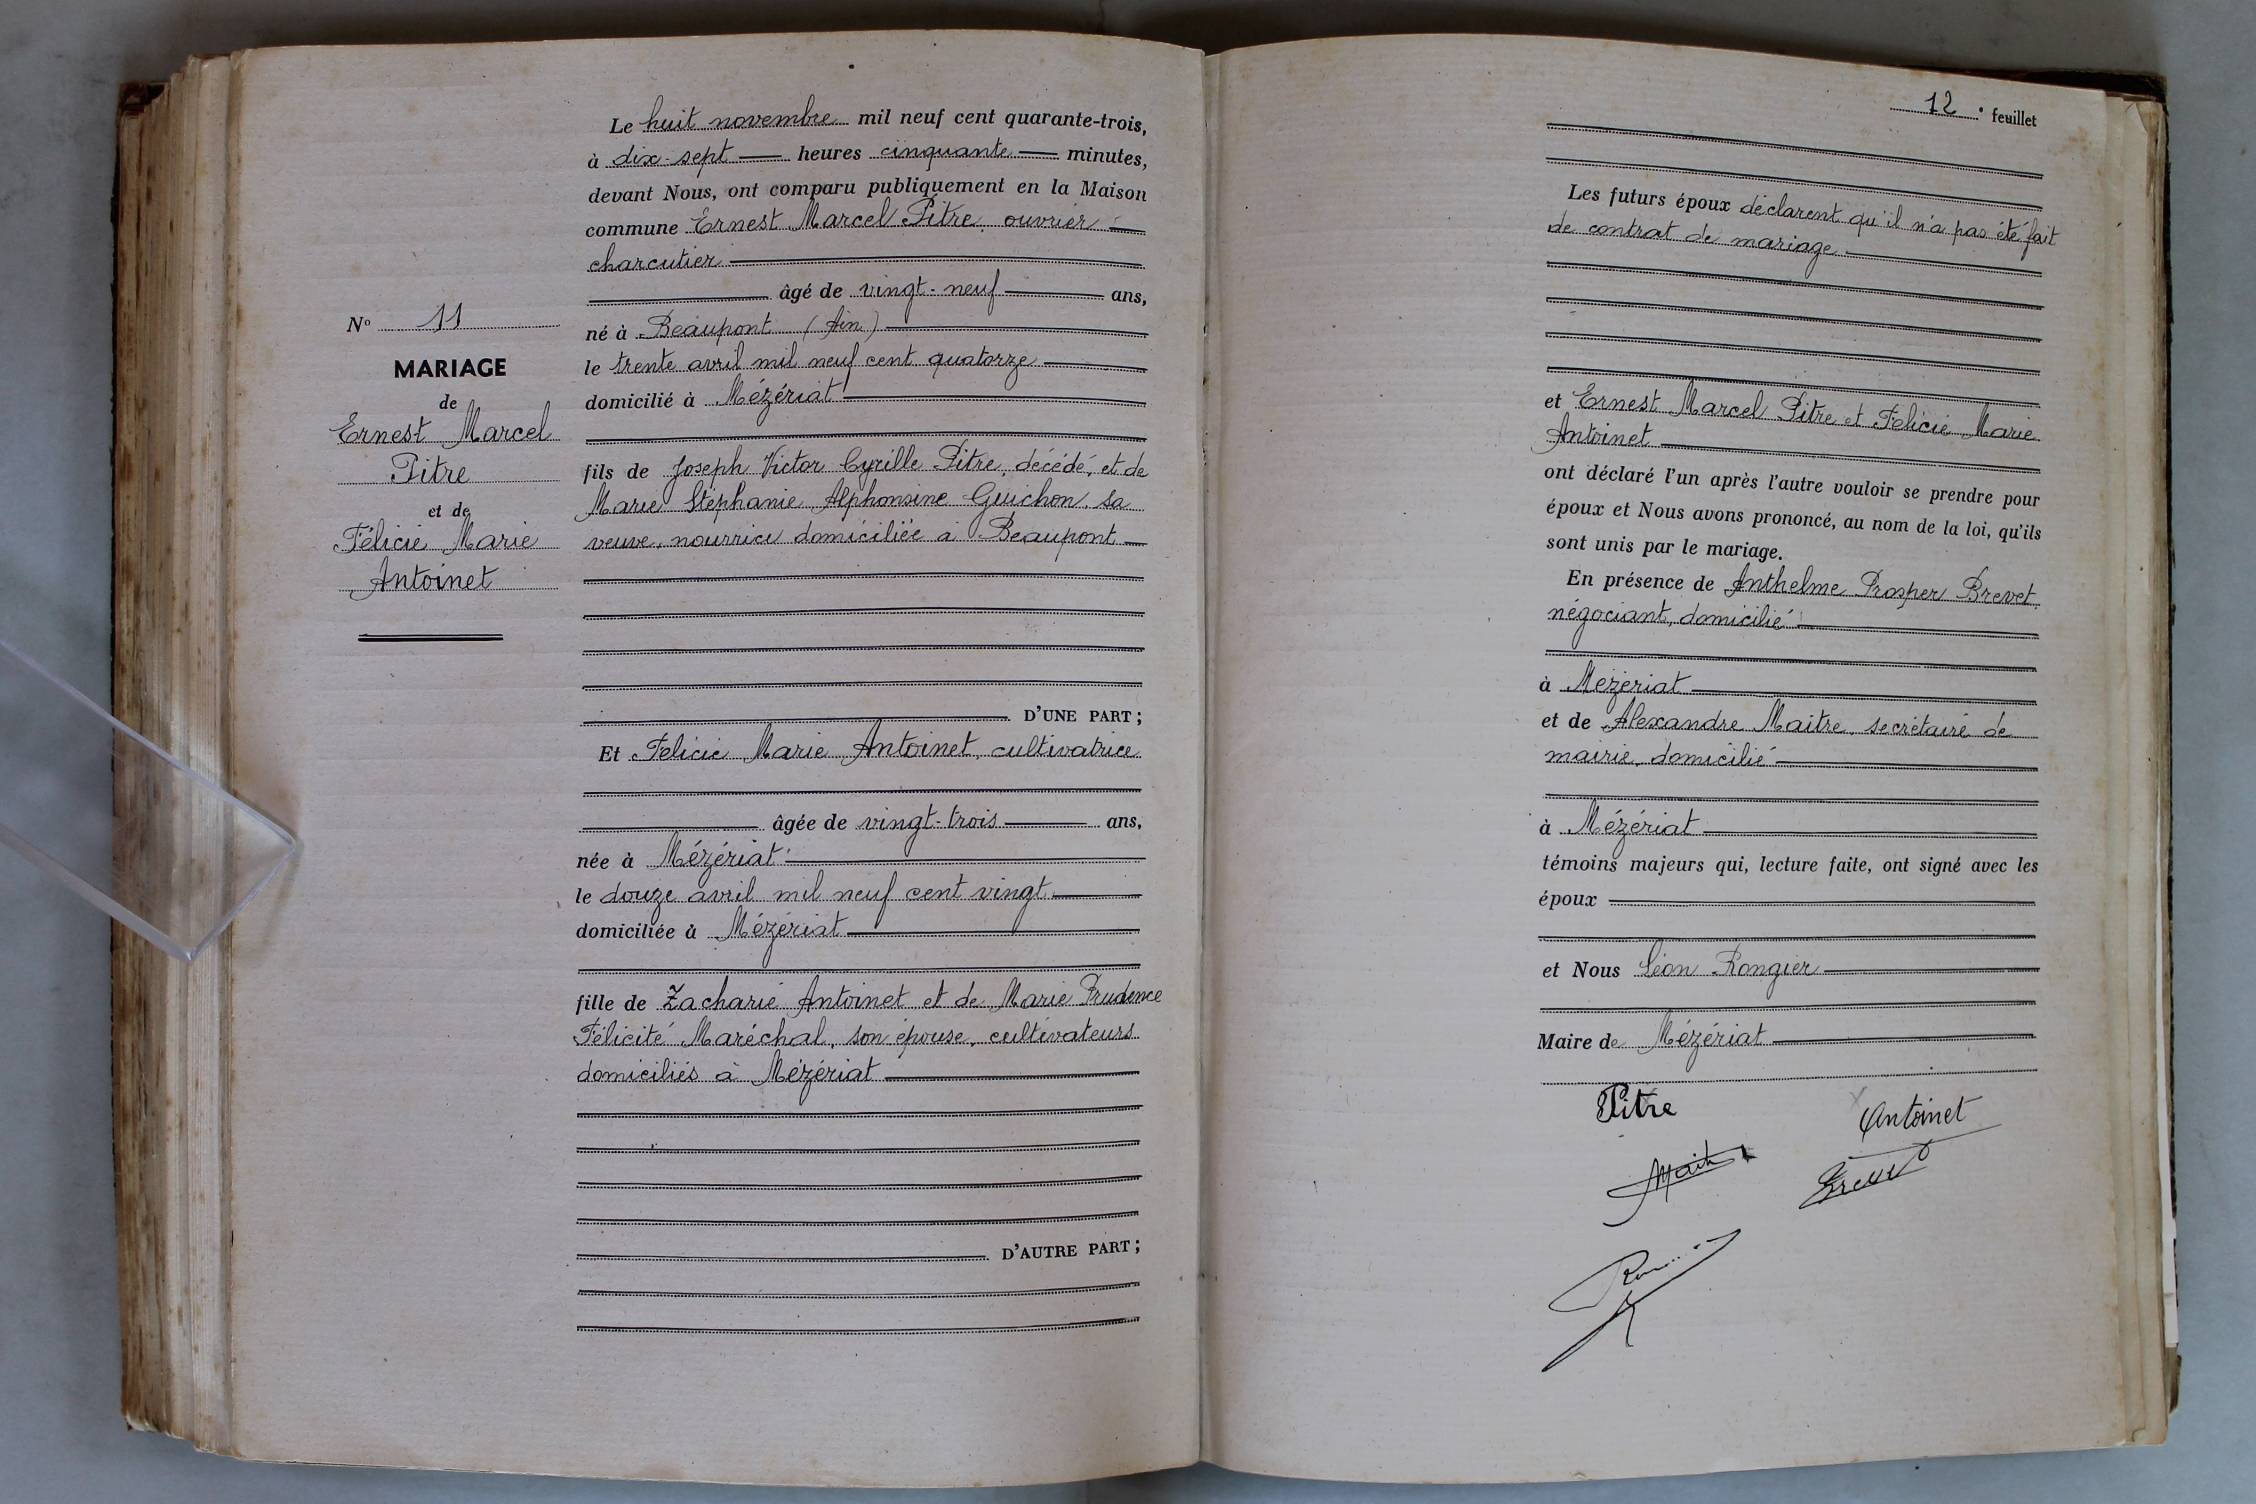 N° 11
MARIAGE
de
Ernest Marcel
Pitre
et de
Félicie Marie
Antoinet
Le huit novembre mil neuf cent quarante-trois,
à dix-sept heures cinquante minutes,
devant Nous, ont comparu publiquement en la Maison
commune Ernest Marcel Pitre, ouvrier
charcutier
âgé de vingt-neuf ans,
né à Beaupont (Ain)
le trente avril mil neuf cent quatorze
domicilié à Mézériat
fils de Joseph Victor Cyrille Pitre, décédé, et de
Marie Stéphanie Alphonsine Guichon, sa
veuve, nourrice domiciliée à Beaupont
D'UNE PART ;
Et Félicie Marie Antoinet, cultivatrice
âgée de vingt-trois ans,
née à Mézériat
le douze avril mil neuf cent vingt
domiciliée à Mézériat
fille de Zacharie Antoinet et de Marie Prudence
Félicité Maréchal, son épouse, cultivateurs
domiciliés à Mézériat
D'AUTRE PART ;
12e feuillet
Les futurs époux déclarent qu'il n'a pas été fait
de contrat de mariage
et Ernest Marcel Pitre et Félicie Marie
Antoinet
ont déclaré l'un après l'autre vouloir se prendre pour
époux et Nous avons prononcé, au nom de la loi, qu'ils
sont unis par le mariage.
En présence de Anthelme Prosper Brevet
négociant, domicilié
à Mézériat
et de Alexandre Maitre, secrétaire de
mairie, domicilié
à Mézériat
témoins majeurs qui, lecture faite, ont signé avec les
époux
et Nous Léon Rongier
Maire de Mézériat
Pitre
Antoinet
Brevet